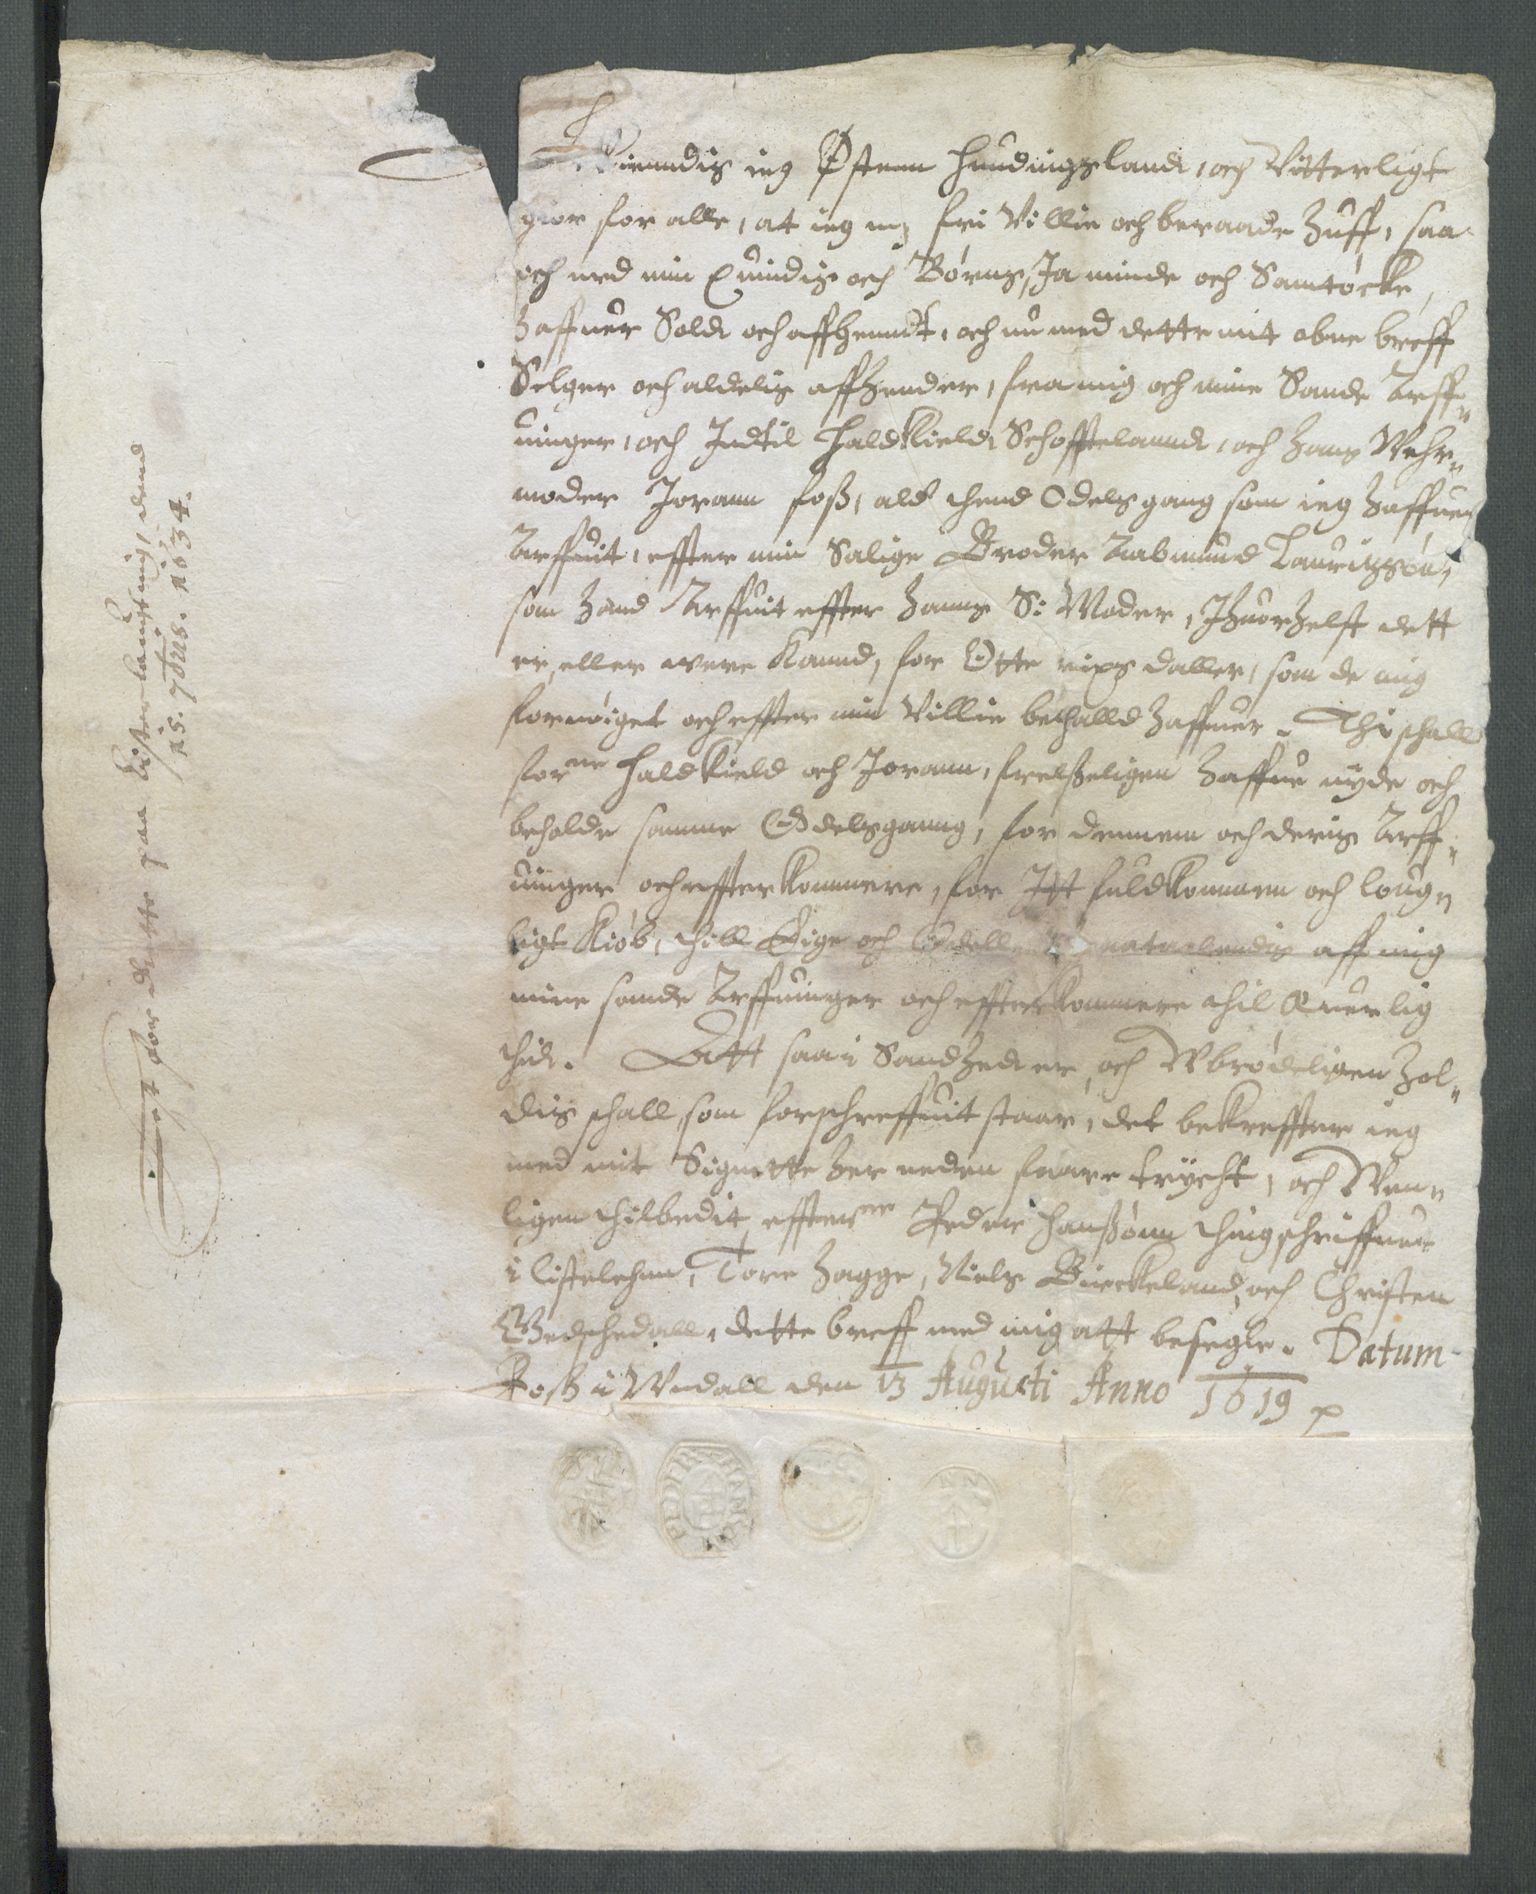 Kienndis ieg Østenn Hundingsland, och Vitterligt
gior for alle, at ieg m; fri Villie och beraade Huff, saa
och med min Quindis och Børns, Ja minde och Samtøcke,
Haffuer Sold och affhenndt, och nu med dette mit obne breff
Selger och aldelis affhender, fra mig och mine Sande Arff„
uinger, och Indtil Haldkield Schoffteland, och hans Wehr„
moder Joran Foss, ald thend Odelsgang som ieg haffuer
Arffuit, effter min Salige Broder Aabmund Lauritzsøn,
som hand Arffuit effter hanns S: Moder, Ihuorhelst dett
er, eller were kannd, for Otte rixs daller, som de mig
fornøiget och effter min Villie bethalld haffuer. Thi schall
forne Haldkield och Jorann, frelseligen haffue nyde och
beholde samme Odelsganng, for dennem och deris Arff„
uinger och effterkommere, for Itt fuldkommen och loug„
ligt Kiøb, thill Eige och Odell aff mig
mine sande Arffuinger och effterkommere thil Euerlig
thid. Att saa i Sandhed er, och Wbrødeligen hol„
dis schall, som forschreffuit staar, det bekreffter ieg
med mit Signette her neden faare trycht, och Wen„
ligen thilbedit effterne Peder Hanssønn thingschriffuer
i Listelehnn, Tore Hagge, Niels Birckeland, och Christen
Wedschedall, dette breff med mig att besegle. Datum
Foss i Windall den 13 Augusti Anno 1619
Lest for dette paa Lister lauting, dend
15. 7bris. 1634.
PEDER HANSØN